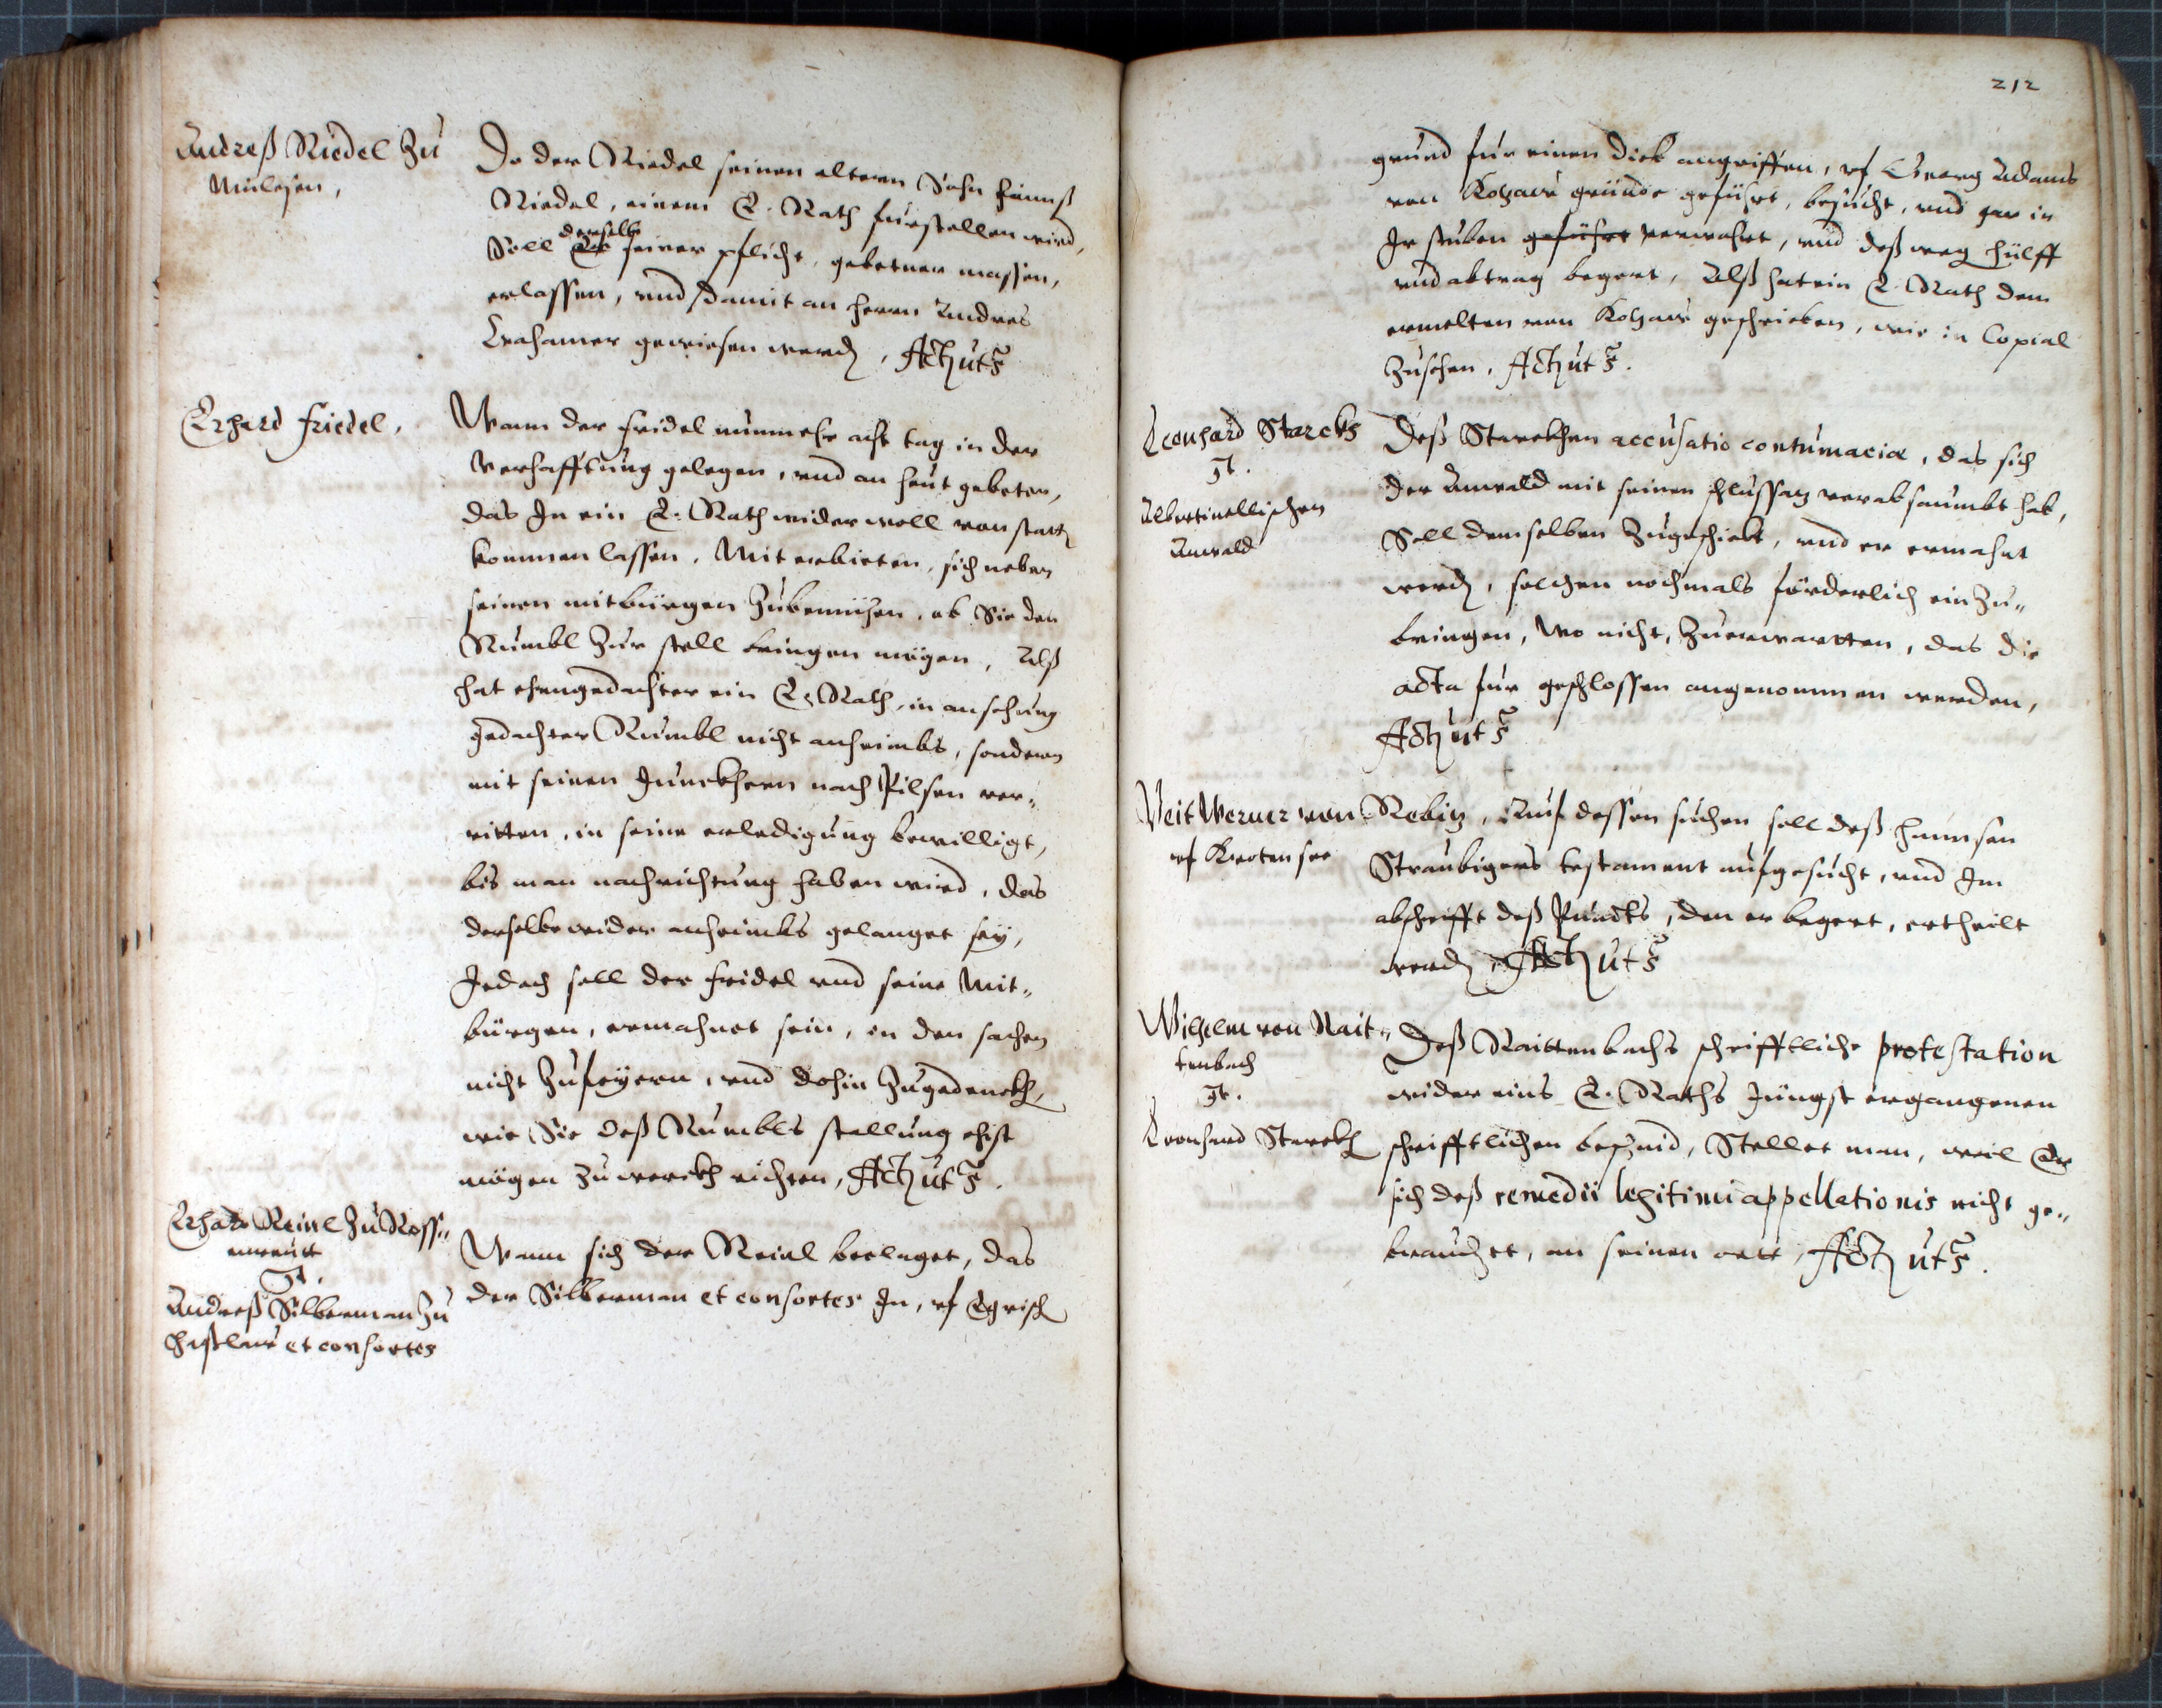 Andreß Riedel Zu
Mülesen,
Do der Riedel seinen eltern Sohn Hannß
Riedel, einem E. Rath furstellen wird,
Soll Er derselb seiner pflicht, gebetner massen,
erlassen, vnd damit an herrn Andres
Crahamer gewiesen werden, Actum ut supra
Erhard Friedel,
Wann der Fridel nunmehr acht tag in der
Verhafftung gelegen, vnd an heut gebeten,
das In ein E. Rath wider woll von statten
kommen lassen, Mit erbieten, sich neben
seinen mitbürgen Zubemühen, ob Sie den
Rumbl Zur stell bringen mögen, Alß
hat ehrngedachter ein E. Rath, in ansehung
gedachter Rumbl nicht anheimbs, sondern
mit seinen Junckhern nach Pilsen ver-
ritten, in seine erledigung bewilligt,
bis man nachrichtung haben wird, das
derselbe wider anheimbs gelanget sey,
Jedoch soll der Fridel vnd seine Mit-
bürgen, ermahnet sein, in den sachen
nicht Zufeyern, vnd dohin Zugedenckhen,
wie Sie deß Rumbls stellung ehist
mögen Zu werckh richten, Actum ut supra.
Erhard Reinl Zu Rossn-
reutt
Ct.
Andreß Silberman Zu
Haßlaw et consortes
Wann sich der Reinl beclaget, das
der Silberman et consortes In, vf Egrisch
212
grund fur einen dieb angriffen, vf Georg Adams
von Kotzaw gründe geführt, besucht, vnd gar in
Ir stuben geführt verwahrt, vnd deßweg hülff
vnd abtrag begert, Alß hat ein E. Rath dem
ermelten von Kotzaw geschrieben, wie in Copial
Zusehen, Actum ut supra.
Leonhard Starcks
Ct.
Albertinellischen
Anwald
Deß Starckhen accusatio contumaciæ, das sich
der Anwald mit seinen schlussatz verabsaumbt hab,
Soll demselben Zugeschickt, vnd er ermahnt
werden, solchen nochmals förderlich ein Zu-
bringen, Wo nicht, Zuerwartten, das die
acta fur geschlossen angenommen werden,
Actum ut supra
Veit Werner von Rebitz
vf Krotensee
Auf dessen suchen soll deß Hannsen
Straubigers testament aufgesucht, vnd Im
abschrifft deß Puncts, den er begert, ertheilt
werden, Actum ut supra
Wilhelm von Rait-
tenbach
Ct.
Leonhard Starckh
Deß Raittenbachs schrifftliche protestation
wider eins E. Raths Jüngst ergangenen
schrifftlichen bescheid, Stellet man, weil Er
sich deß remedii legitimi appellationis nicht ge-
brauchet, an seinen ortt, Actum ut supra.